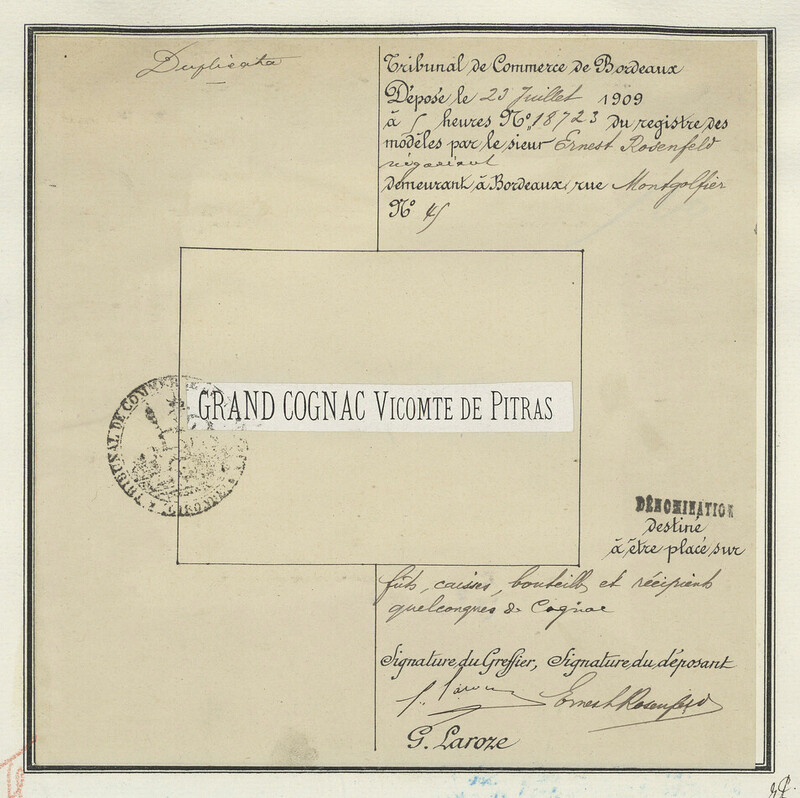 Duplicata
Tribunal de Commerce de Bordeaux
Déposé le 23 Juillet 1909
à 5 heures No. 18723 du registre des
modèles par le sieur Ernest Rosenfeld
négociant
demeurant à Bordeaux rue Montgolfier
No 45
GRAND COGNAC VICOMTE DE PITRAS
TRIBUNAL DE COMMERCE
DÉNOMINATION
destiné
à être placé sur
fûts, caisses, bouteilles et récipients
quelconques de Cognac
Signature du Greffier, Signature du déposant
Ernest Rosenfeld
G. Laroze